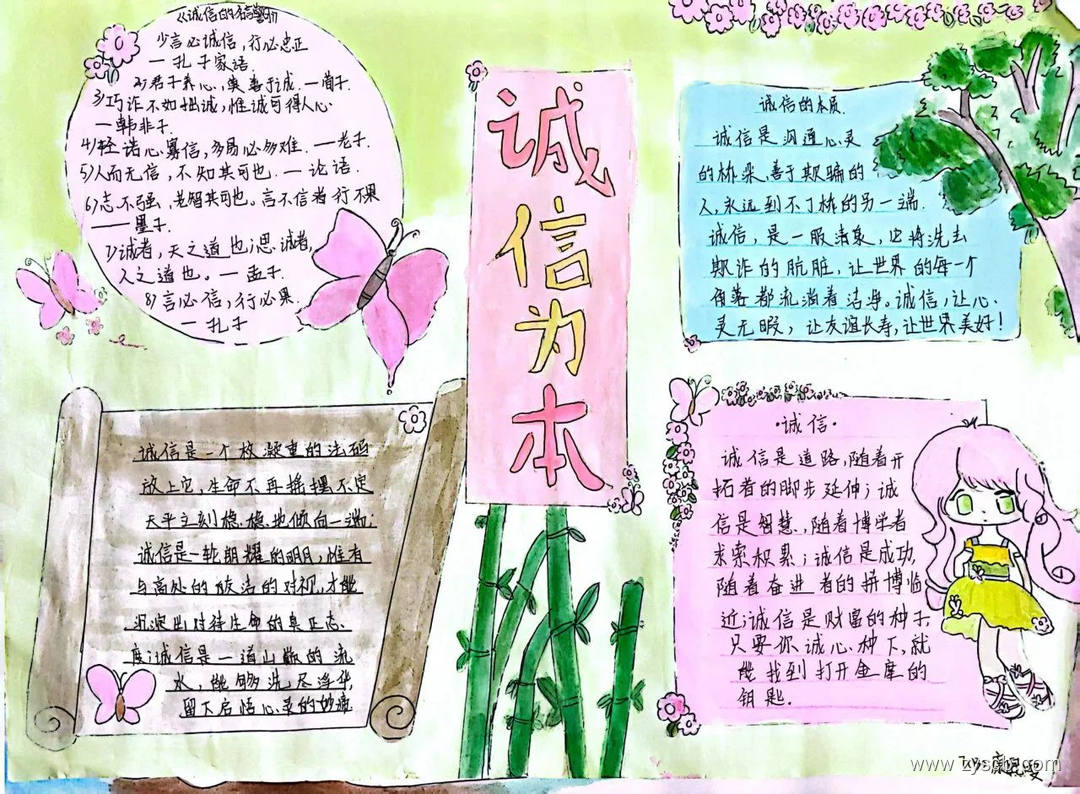 《诚信的名言》
1)言必诚信,行必忠正
一孔子家语.
2)君子养心,莫善于诚.一荀子.
3)巧诈不如拙诚,惟诚可得人心.
一韩非子.
4)轻诺必寡信,多易必多难.一老子.
5)人而无信,不知其可也.一论语.
6)志不强,者智其可也。言不信者行不果
一墨子.
7)诚者,天之道也;思诚者,
人之道也。一孟子.
8)言必信,行必果.
一孔子
诚信为本
诚信的本质.
诚信是沟通心灵
的桥梁,善于欺骗的
人,永远到不了桥的另一端.
诚信,是一股清泉,它将洗去
欺诈的肮脏,让世界的每一个
角落都流淌着洁净。诚信,让心
灵无暇,让友谊长寿,让世界美好!
诚信是一个枚凝重的法码
放上它,生命不再摇摆不定
天平立刻稳稳地倾向一端;
诚信是一轮朗耀的明月,惟有
与高处的皎洁的对视,才能
沉淀出对待生命的真正态
度;诚信是一道山巅的流
水,能够洗尽浮华,
留下启悟心灵的妙谛
·诚信·
诚信是道路,随着开
拓者的脚步延伸;诚
信是智慧,随着博学者
求索积累;诚信是成功,
随着奋进者的拼博临
近;诚信是财富的种子
只要你诚心种下,就
能找到打开金库的
钥匙.